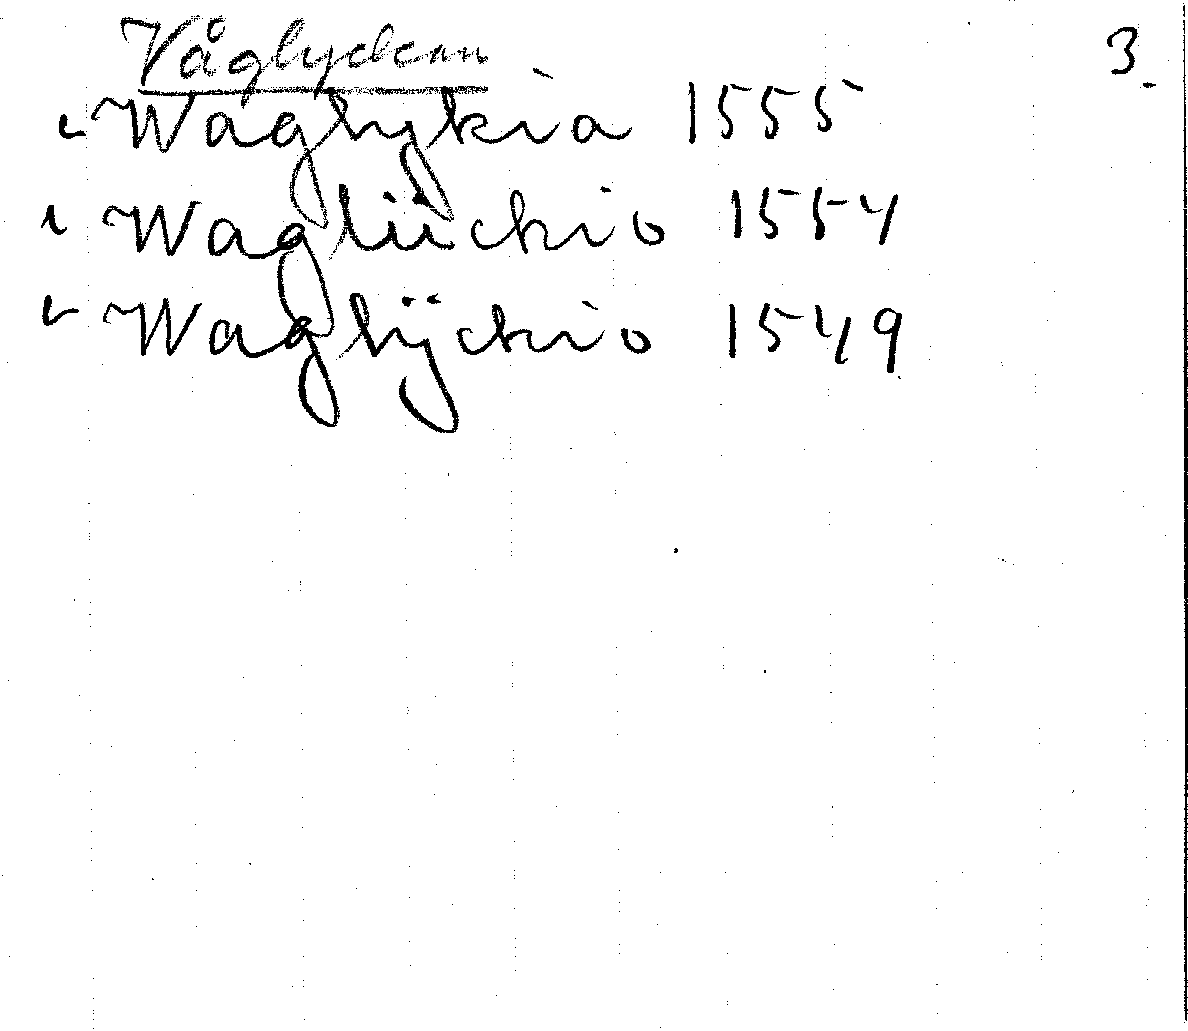 Våglycken 3.
Waglykia 1555
Waglückio 1554
Waglÿckio 1549